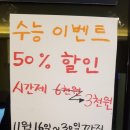 수능 이벤트
50% 할인
시간제 6천원→3천원
11월 16일~30일까지